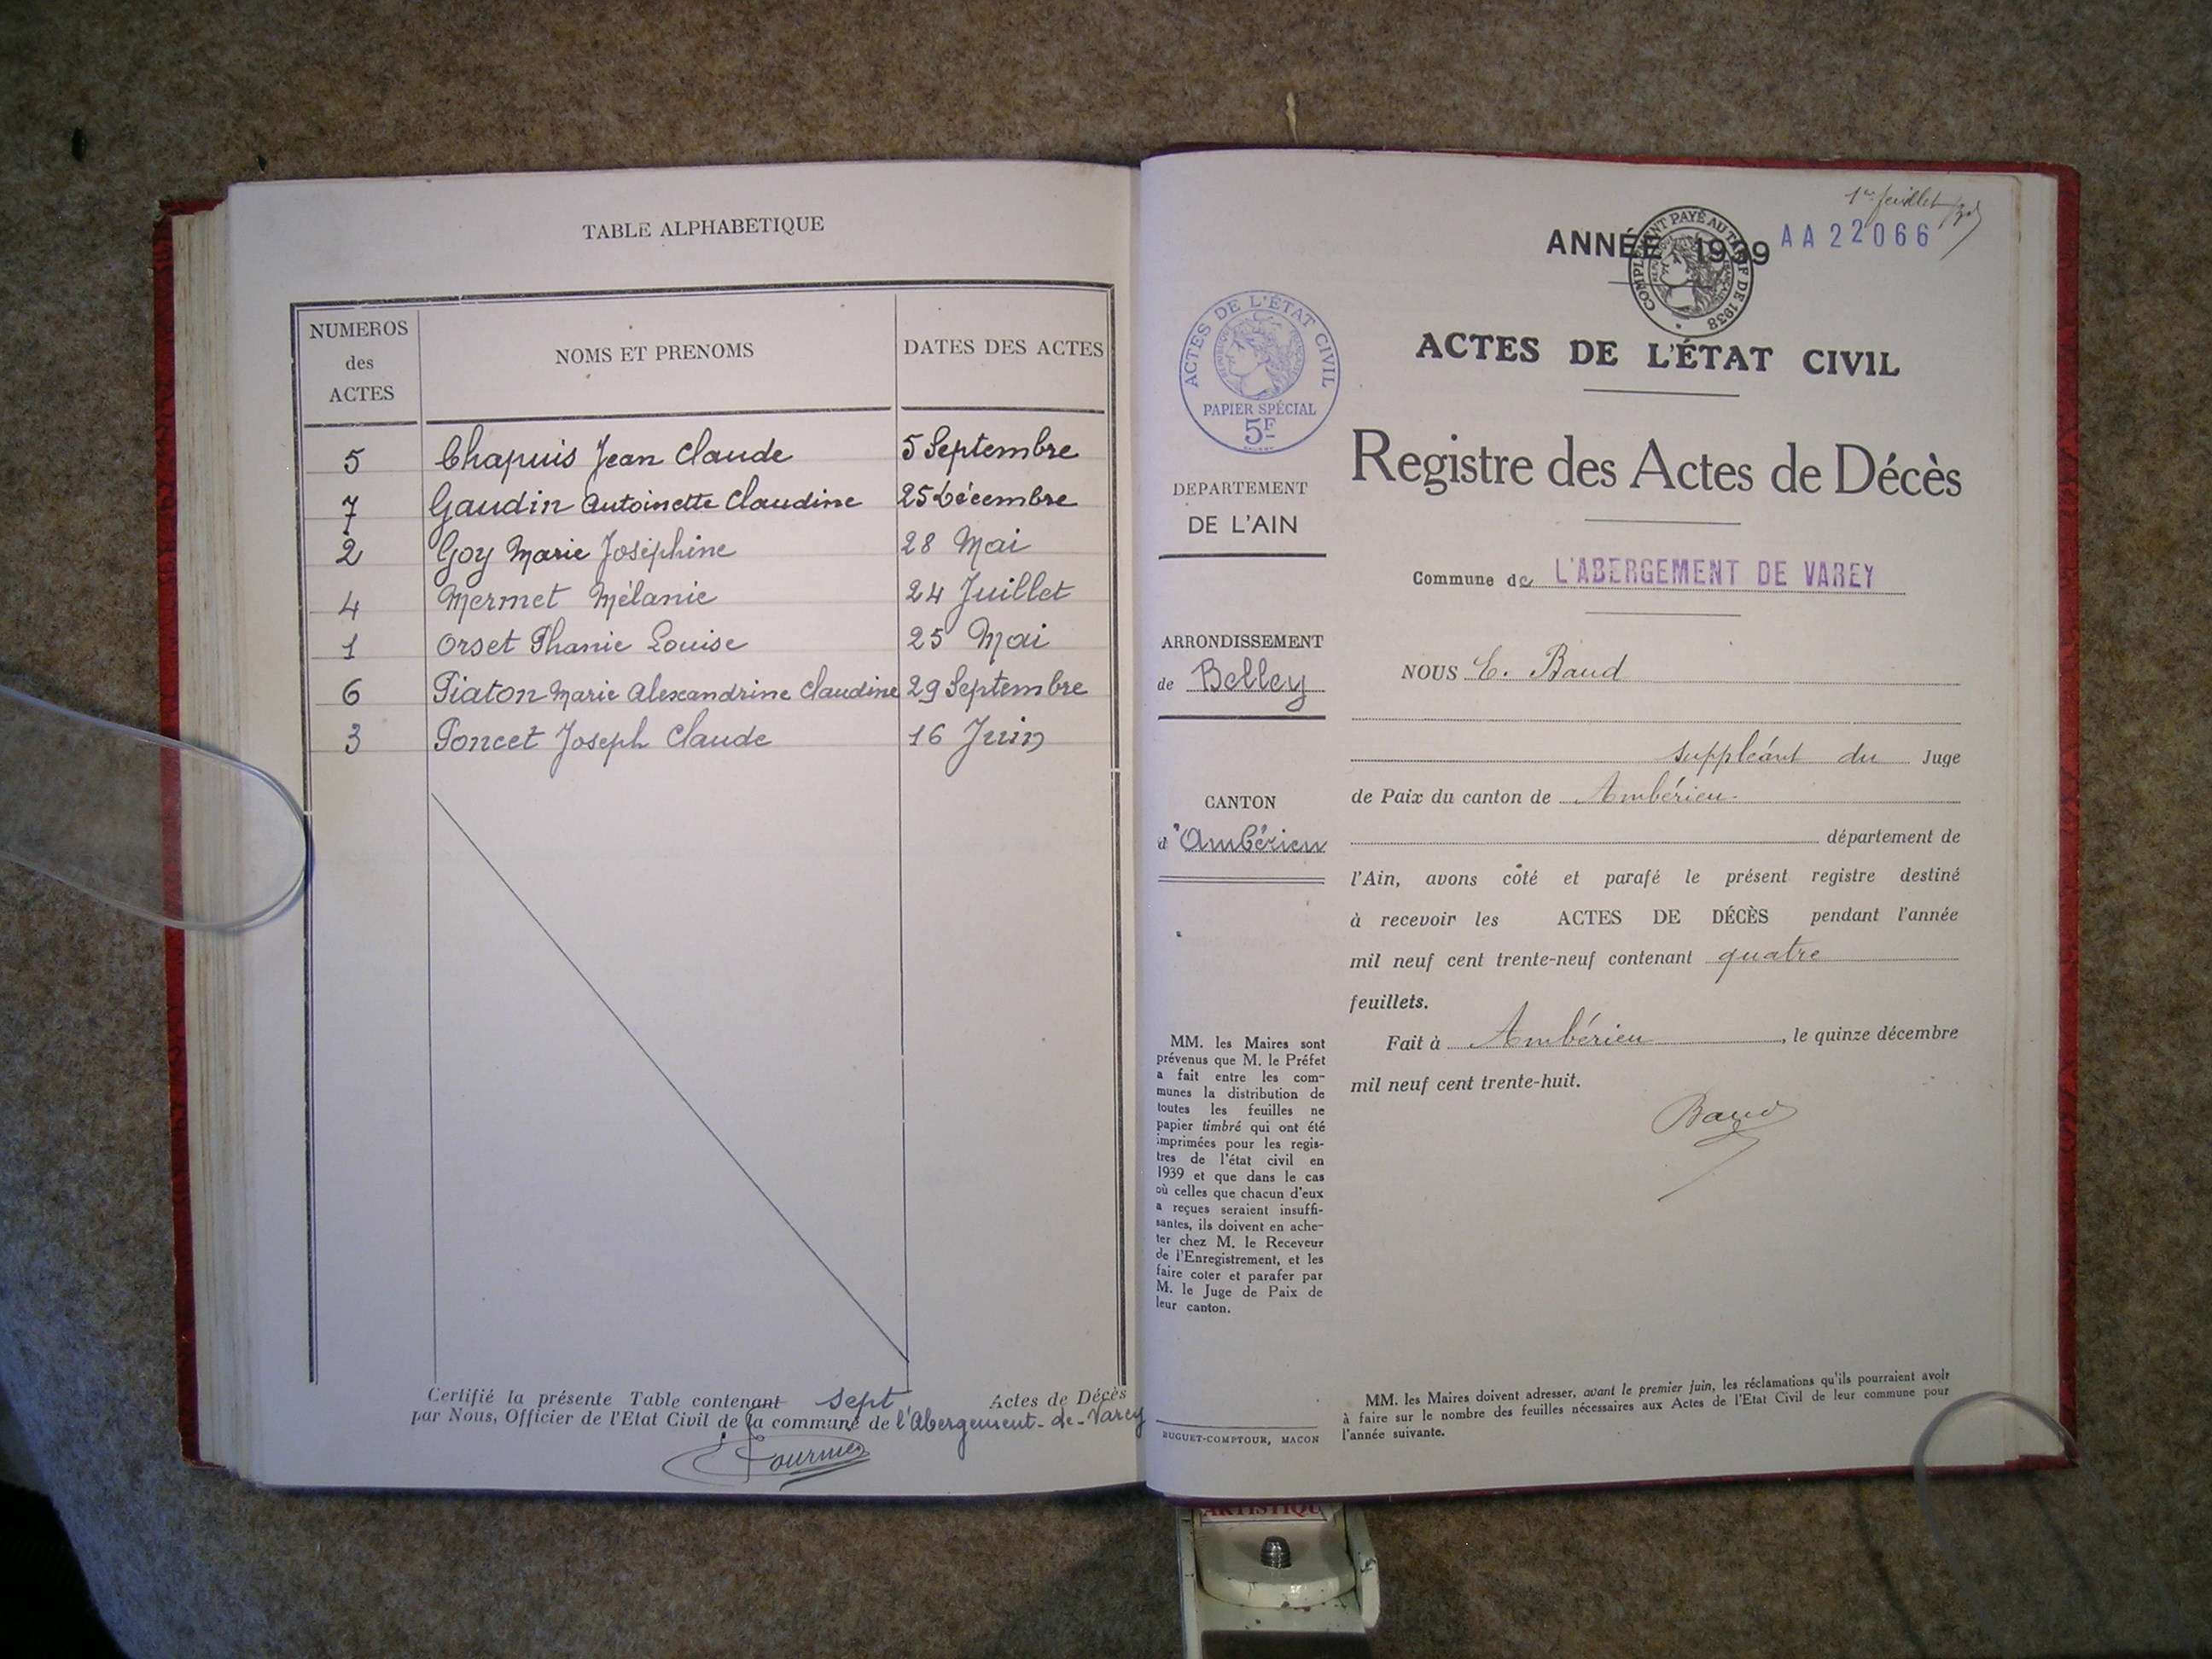 TABLE ALPHABETIQUE
NUMEROS
des
ACTES
NOMS ET PRENOMS
DATES DES ACTES
5 Chapuis Jean Claude 5 Septembre
7 Gaudin Antoinette Claudine 25 Décembre
2 Goy Marie Joséphine 28 Mai
4 Mermet Mélanie 24 Juillet
1 Orset Phanie Louise 25 Mai
6 Piaton Marie Alexandrine Claudine 29 Septembre
3 Poncet Joseph Claude 16 Juin
Certifié la présente Table contenant sept Actes de Décès
par Nous, Officier de l'Etat Civil de la commune de l'Abergement-de-Varey
Fournier
1er feuillet
ANNÉE 1939
AA22066
COMPLÉMENT PAYÉ AU TARIF DE 1938
ACTES DE L'ÉTAT CIVIL
PAPIER SPÉCIAL
5F
DEPARTEMENT
DE L'AIN
ARRONDISSEMENT
de Belley
CANTON
d'Ambérieu
MM. les Maires sont
prévenus que M. le Préfet
a fait entre les com-
munes la distribution de
toutes les feuilles ne
papier timbré qui ont été
imprimées pour les regis-
tres de l'état civil en
1939 et que dans le cas
où celles que chacun d'eux
a reçues seraient insuffi-
santes, ils doivent en ache-
ter chez M. le Receveur
de l'Enregistrement, et les
faire coter et parafer par
M. le Juge de Paix de
leur canton.
BUGUET-COMPTOUR, MACON
ACTES DE L'ÉTAT CIVIL
Registre des Actes de Décès
Commune de L'ABERGEMENT DE VAREY
NOUS E. Baud
suppléant du Juge
de Paix du canton de Ambérieu
département de
l'Ain, avons côté et parafé le présent registre destiné
à recevoir les ACTES DE DÉCÈS pendant l'année
mil neuf cent trente-neuf contenant quatre
feuillets.
Fait à Ambérieu, le quinze décembre
mil neuf cent trente-huit.
Baud
MM. les Maires doivent adresser, avant le premier juin, les réclamations qu'ils pourraient avoir
à faire sur le nombre des feuilles nécessaires aux Actes de l'Etat Civil de leur commune pour
l'année suivante.
ARTISTIQU